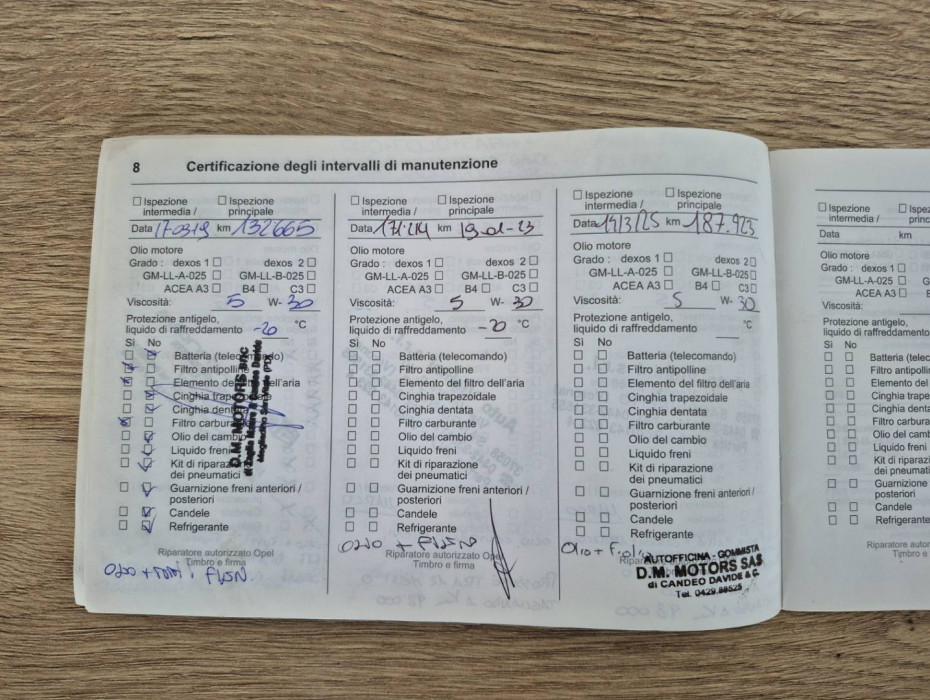 8 Certificazione degli intervalli di manutenzione
Ispezione intermedia /
Ispezione principale
Data 17-03-19 km 132665
Olio motore
Grado : dexos 1 dexos 2
GM-LL-A-025 GM-LL-B-025
ACEA A3 B4 C3
Viscosità: 5 W- 30
Protezione antigelo,
liquido di raffreddamento -20 °C
Sì No
Batteria (telecomando)
Filtro antipolline
Elemento del filtro dell'aria
Cinghia trapezoidale
Cinghia dentata
Filtro carburante
Olio del cambio
Liquido freni
Kit di riparazione
dei pneumatici
Guarnizione freni anteriori /
posteriori
Candele
Refrigerante
Riparatore autorizzato Opel
Timbro e firma
D.M. MOTORS snc
Ispezione intermedia /
Ispezione principale
Data 171.214 km 19-01-23
Olio motore
Grado : dexos 1 dexos 2
GM-LL-A-025 GM-LL-B-025
ACEA A3 B4 C3
Viscosità: 5 W- 30
Protezione antigelo,
liquido di raffreddamento -20 °C
Sì No
Batteria (telecomando)
Filtro antipolline
Elemento del filtro dell'aria
Cinghia trapezoidale
Cinghia dentata
Filtro carburante
Olio del cambio
Liquido freni
Kit di riparazione
dei pneumatici
Guarnizione freni anteriori /
posteriori
Candele
Refrigerante
Riparatore autorizzato Opel
Timbro e firma
Ispezione intermedia /
Ispezione principale
Data 14/3/25 km 187.923
Olio motore
Grado : dexos 1 dexos 2
GM-LL-A-025 GM-LL-B-025
ACEA A3 B4 C3
Viscosità: 5 W- 30
Protezione antigelo,
liquido di raffreddamento °C
Sì No
Batteria (telecomando)
Filtro antipolline
Elemento del filtro dell'aria
Cinghia trapezoidale
Cinghia dentata
Filtro carburante
Olio del cambio
Liquido freni
Kit di riparazione
dei pneumatici
Guarnizione freni anteriori /
posteriori
Candele
Refrigerante
Olio +
AUTOFFICINA - GOMMISTA
D.M. MOTORS SAS
di CANDEO DAVIDE & C.
Tel. 0429.88525
Ispezione
intermedia /
Data km
Olio motore
Grado : dexos 1
GM-LL-A-025
ACEA A3
Viscosità:
Protezione antigelo,
liquido di raffreddamento
Sì No